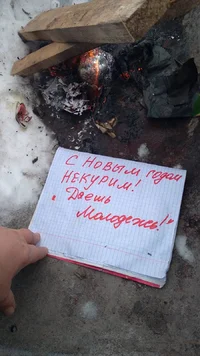 С НОВЫМ, годам
НЕКУРИМ!
"Даешь
Молодежь!"